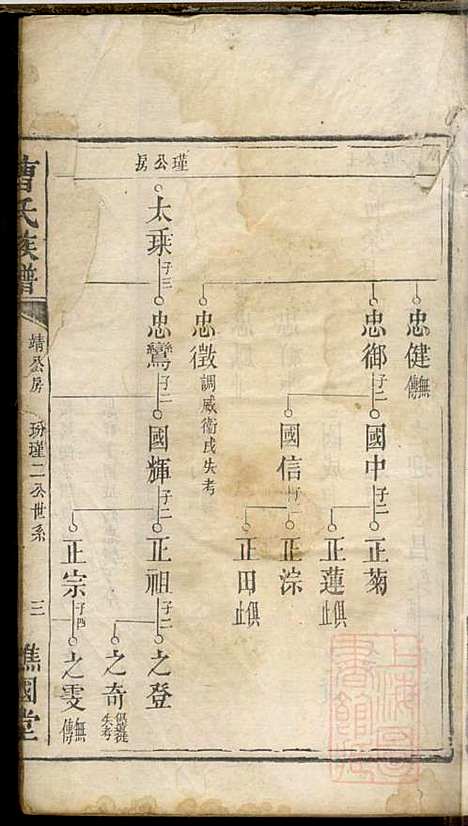 瑾公房
忠健無傳
忠御子二
國中子二
正菊
正蓮俱止
國信子二
正淙
正田俱止
忠徵調威衛戍失考
太乘子三
忠鸞子二
國輝子二
正祖子二
之登
之奇
失考
正宗子四
之雯無傳
曹氏族譜
靖公房
玢瑾二公世系
三
譙國堂
上海圖書館藏